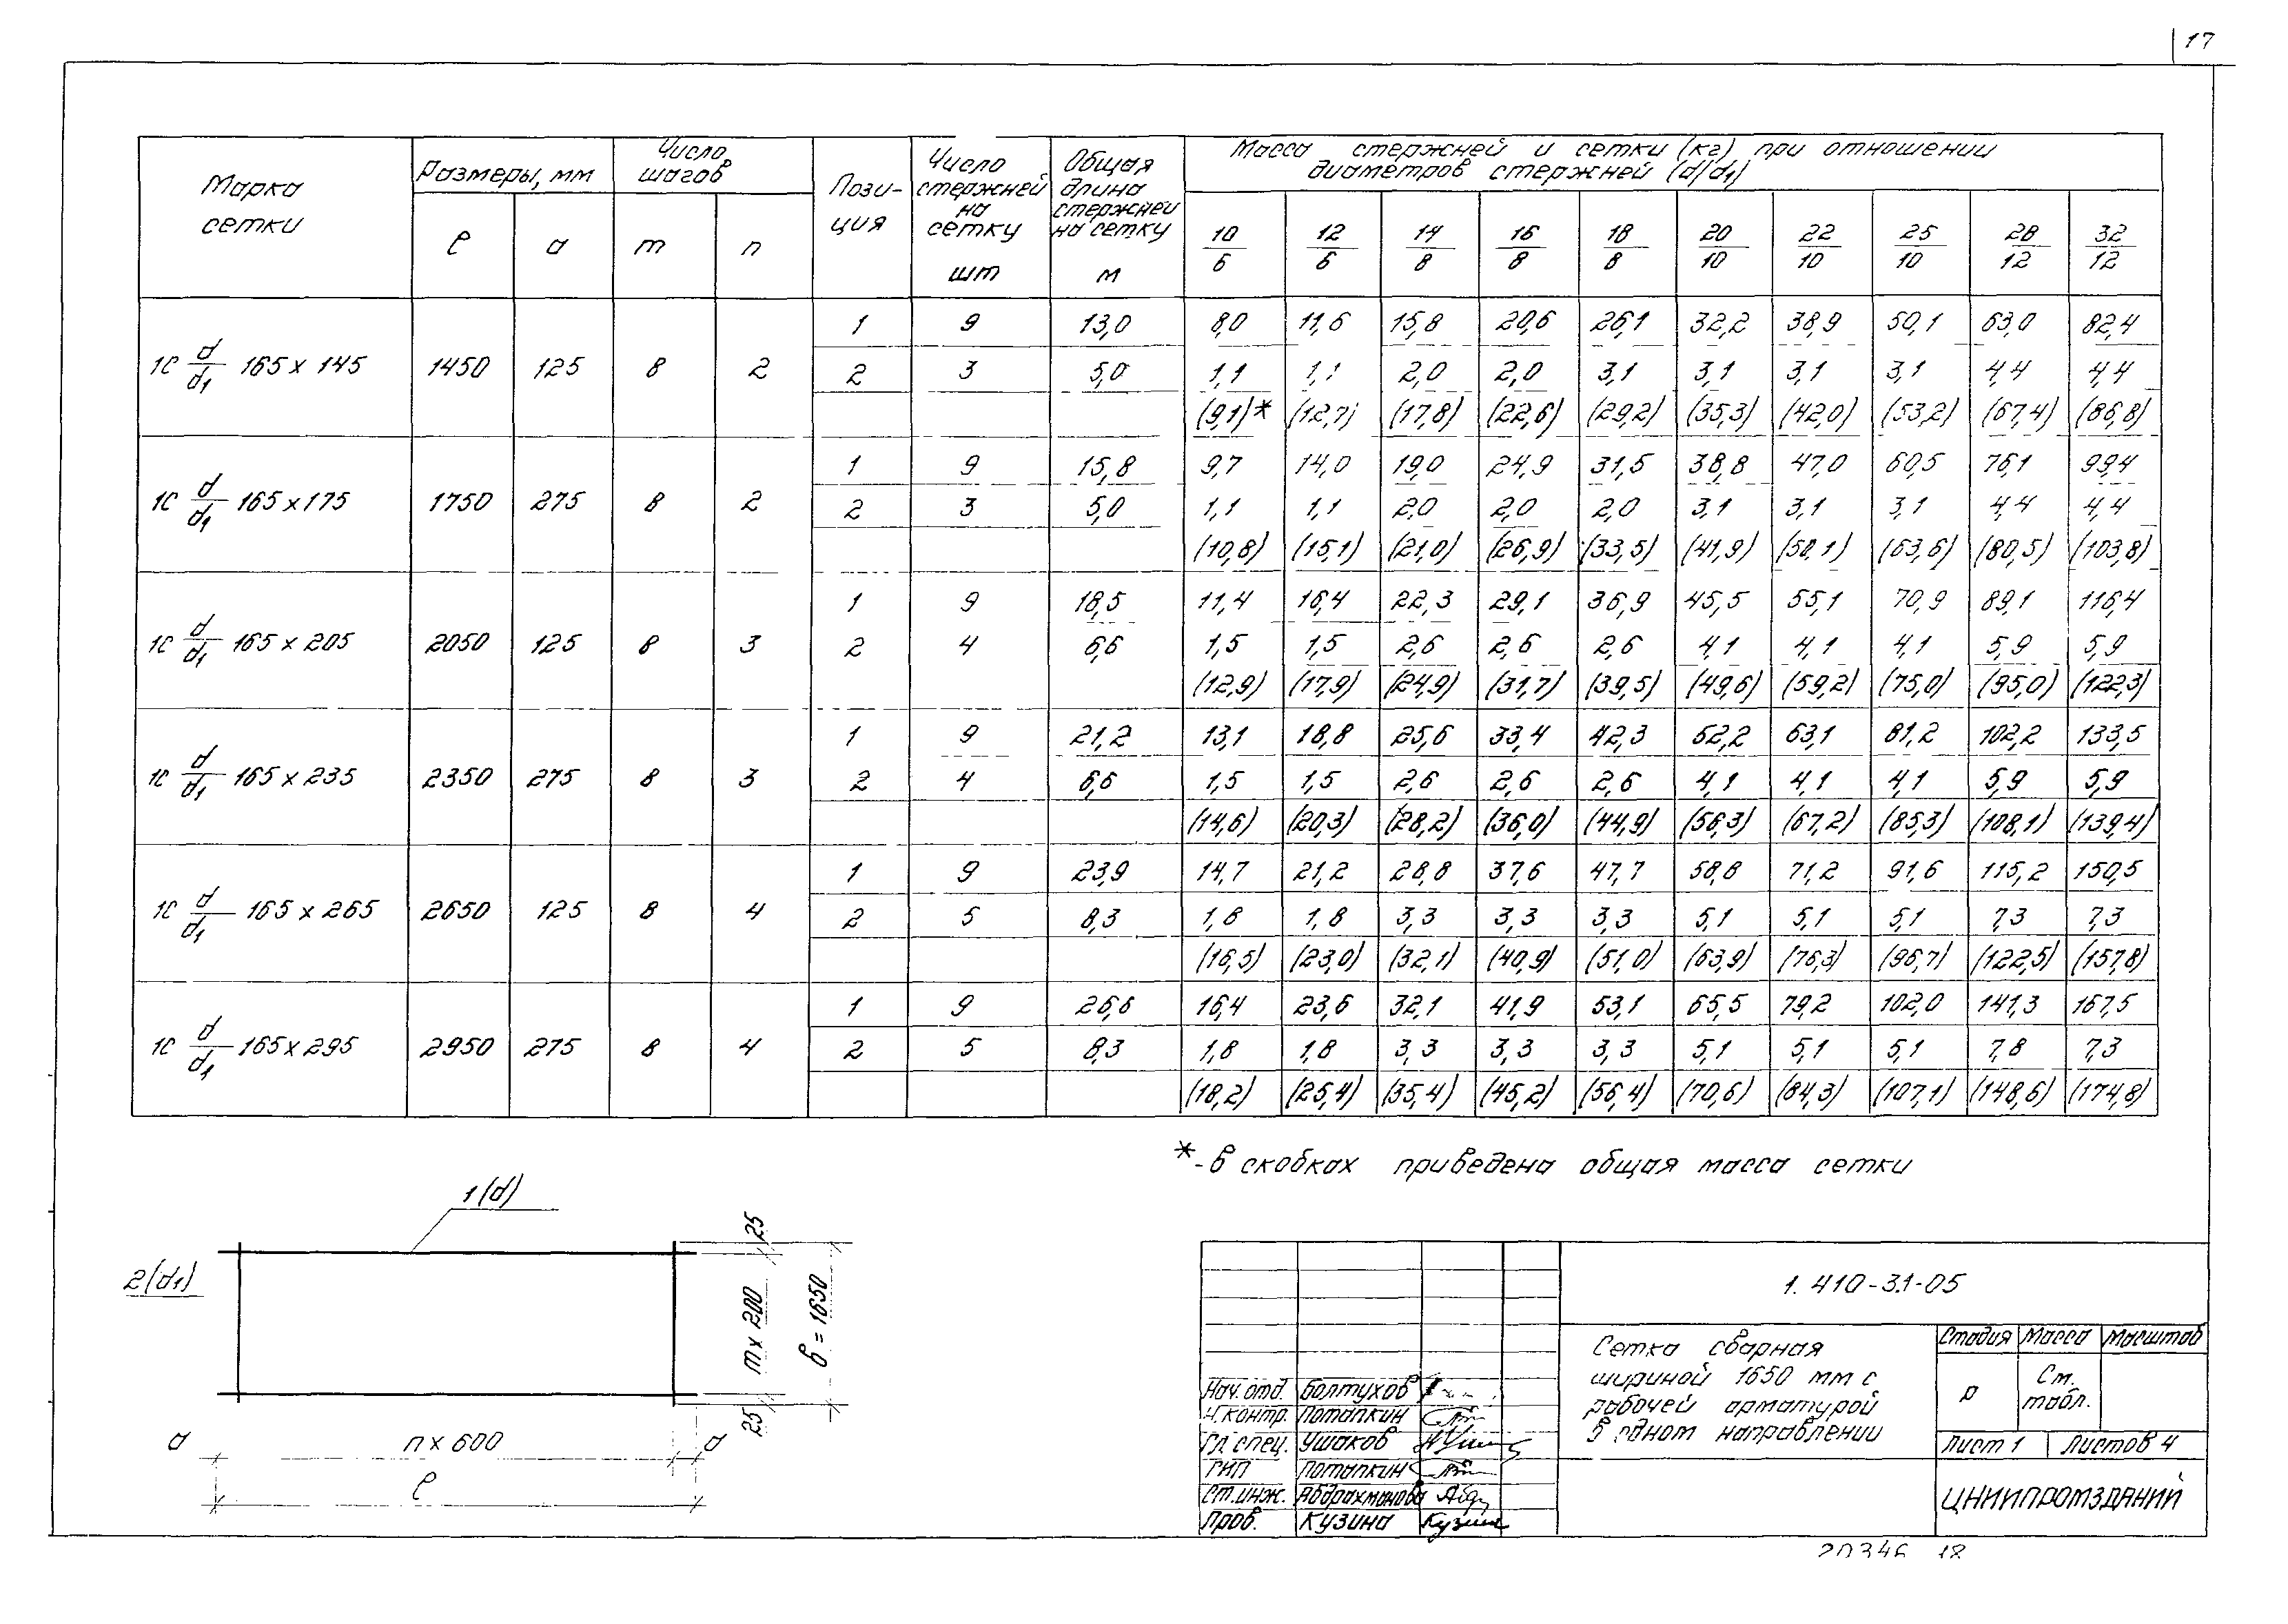 17
Марка сетки | Размеры, мм | Число шагов | Пози-ция | Число стержней на сетку шт | Общая длина стержней на сетку м | Масса стержней и сетки (кг) при отношении диаметров стержней (d/d1)
ℓ | a | m | n | 10/6 | 12/6 | 14/8 | 16/8 | 18/8 | 20/10 | 22/10 | 25/10 | 28/12 | 32/12
1С d/d1 165 х 145 | 1450 | 125 | 8 | 2 | 1 | 9 | 13,0 | 8,0 | 11,6 | 15,8 | 20,6 | 26,1 | 32,2 | 38,9 | 50,1 | 63,0 | 82,4
2 | 3 | 5,0 | 1,1 | 1,1 | 2,0 | 2,0 | 3,1 | 3,1 | 3,1 | 3,1 | 4,4 | 4,4
(9,1)* | (12,7) | (17,8) | (22,6) | (29,2) | (35,3) | (42,0) | (53,2) | (67,4) | (86,8)
1С d/d1 165 х 175 | 1750 | 275 | 8 | 2 | 1 | 9 | 15,8 | 9,7 | 14,0 | 19,0 | 24,9 | 31,5 | 38,8 | 47,0 | 60,5 | 76,1 | 99,4
2 | 3 | 5,0 | 1,1 | 1,1 | 2,0 | 2,0 | 2,0 | 3,1 | 3,1 | 3,1 | 4,4 | 4,4
(10,8) | (15,1) | (21,0) | (26,9) | (33,5) | (41,9) | (50,1) | (63,6) | (80,5) | (103,8)
1С d/d1 165 х 205 | 2050 | 125 | 8 | 3 | 1 | 9 | 18,5 | 11,4 | 16,4 | 22,3 | 29,1 | 36,9 | 45,5 | 55,1 | 70,9 | 89,1 | 116,4
2 | 4 | 6,6 | 1,5 | 1,5 | 2,6 | 2,6 | 2,6 | 4,1 | 4,1 | 4,1 | 5,9 | 5,9
(12,9) | (17,9) | (24,9) | (31,7) | (39,5) | (49,6) | (59,2) | (75,0) | (95,0) | (122,3)
1С d/d1 165 х 235 | 2350 | 275 | 8 | 3 | 1 | 9 | 21,2 | 13,1 | 18,8 | 25,6 | 33,4 | 42,3 | 52,2 | 63,1 | 81,2 | 102,2 | 133,5
2 | 4 | 6,6 | 1,5 | 1,5 | 2,6 | 2,6 | 2,6 | 4,1 | 4,1 | 4,1 | 5,9 | 5,9
(14,6) | (20,3) | (28,2) | (36,0) | (44,9) | (56,3) | (67,2) | (85,3) | (108,1) | (139,4)
1С d/d1 165 х 265 | 2650 | 125 | 8 | 4 | 1 | 9 | 23,9 | 14,7 | 21,2 | 28,8 | 37,6 | 47,7 | 58,8 | 71,2 | 91,6 | 115,2 | 150,5
2 | 5 | 8,3 | 1,8 | 1,8 | 3,3 | 3,3 | 3,3 | 5,1 | 5,1 | 5,1 | 7,3 | 7,3
(16,5) | (23,0) | (32,1) | (40,9) | (51,0) | (63,9) | (76,3) | (96,7) | (122,5) | (157,8)
1С d/d1 165 х 295 | 2950 | 275 | 8 | 4 | 1 | 9 | 26,6 | 16,4 | 23,6 | 32,1 | 41,9 | 53,1 | 65,5 | 79,2 | 102,0 | 141,3 | 167,5
2 | 5 | 8,3 | 1,8 | 1,8 | 3,3 | 3,3 | 3,3 | 5,1 | 5,1 | 5,1 | 7,8 | 7,3
(18,2) | (25,4) | (35,4) | (45,2) | (56,4) | (70,6) | (84,3) | (107,1) | (148,6) | (174,8)
* - в скобках приведена общая масса сетки
1(d)
2(d1)
25
m х 200
в = 1650
25
a
n х 600
a
ℓ
1. 410-3.1-05
Сетка сварная
шириной 1650 мм с
рабочей арматурой
в одном направлении
Стадия | Масса | Масштаб
Р | См. табл.
Лист 1 | Листов 4
ЦНИИПРОМЗДАНИЙ
Нач. отд. Болтухов
Н. контр. Потапкин
Гл. спец. Ушаков
ГИП Потапкин
Ст. инж. Абдрахманова
Пров. Кузина Кузин
20346 18